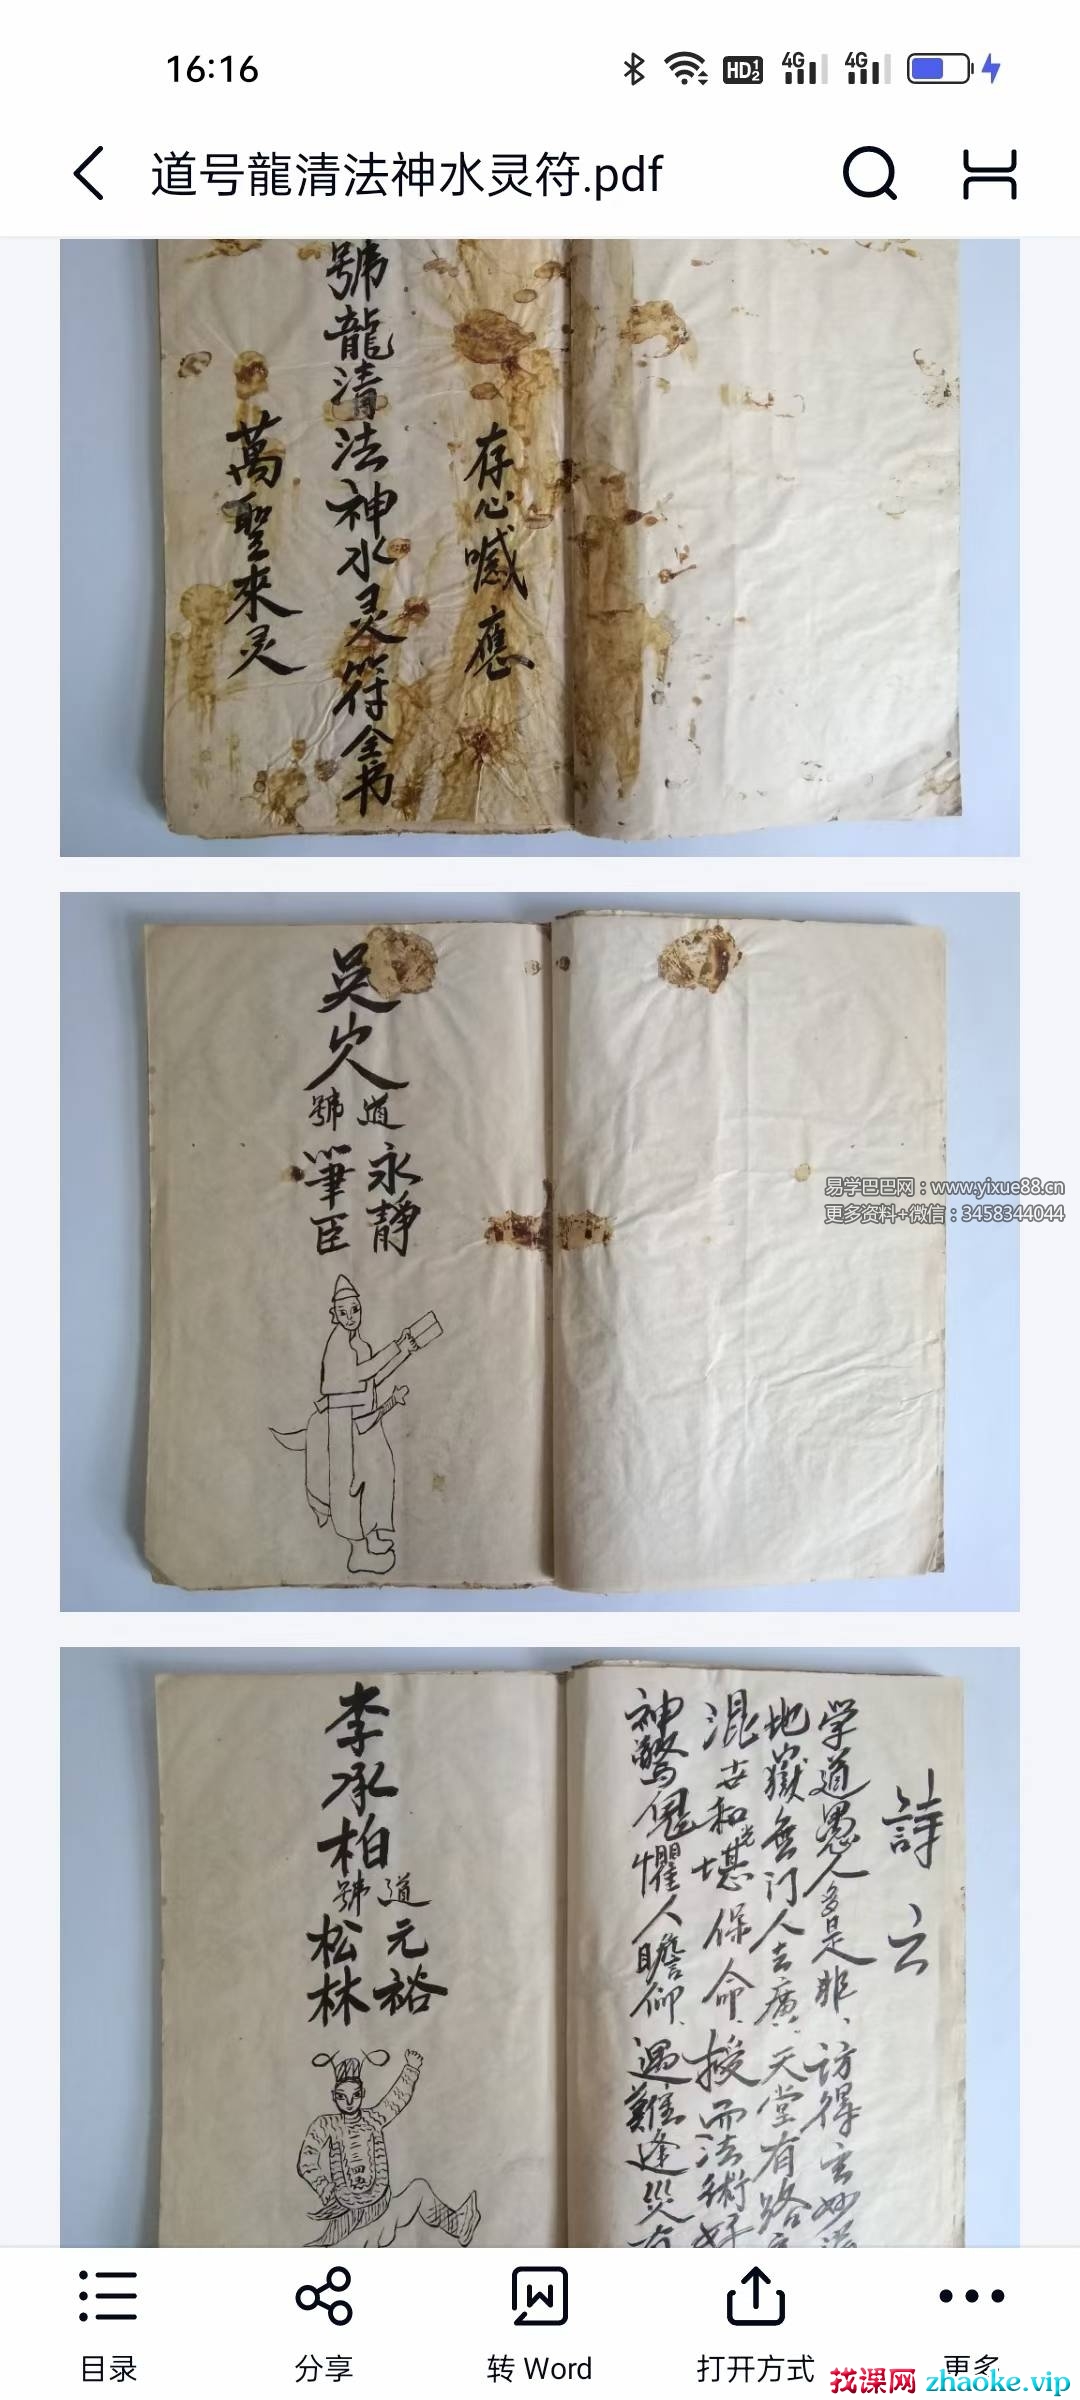 16:16
HD 1 2
4G
4G
道号龍清法神水灵符.pdf
存心喊應
號龍清法神水灵符全书
萬聖來灵
吴
道號
永靜
筆臣
易学巴巴网：www.yixue88.cn
更多资料+微信：3458344044
李承柏
道號
元裕
松林
詩云
学道愚人多是非、访得玄妙
地嶽無门人去廣、天堂有路
混世和光堪保命、授而法術好
神驚鬼懼人瞻仰、遇難逢災
目录
分享
转 Word
打开方式
更多
找课网 zhaoke.vip